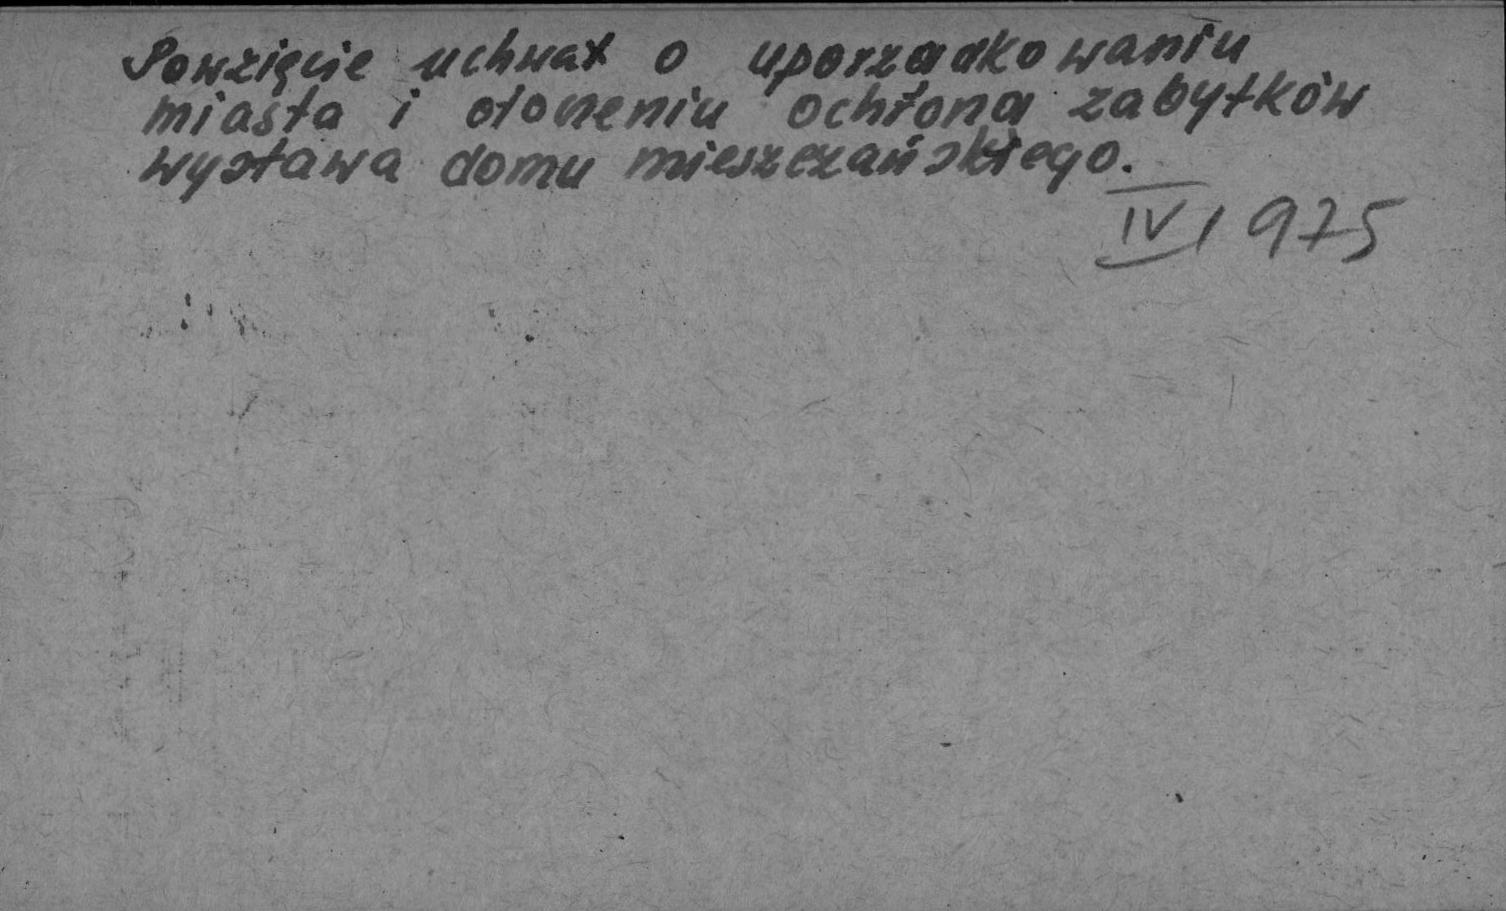 Powzięcie uchwał o uporzadkowaniu
miasta i otoczeniu ochroną zabytków
wystawa domu mieszczańskiego.
IV 1975